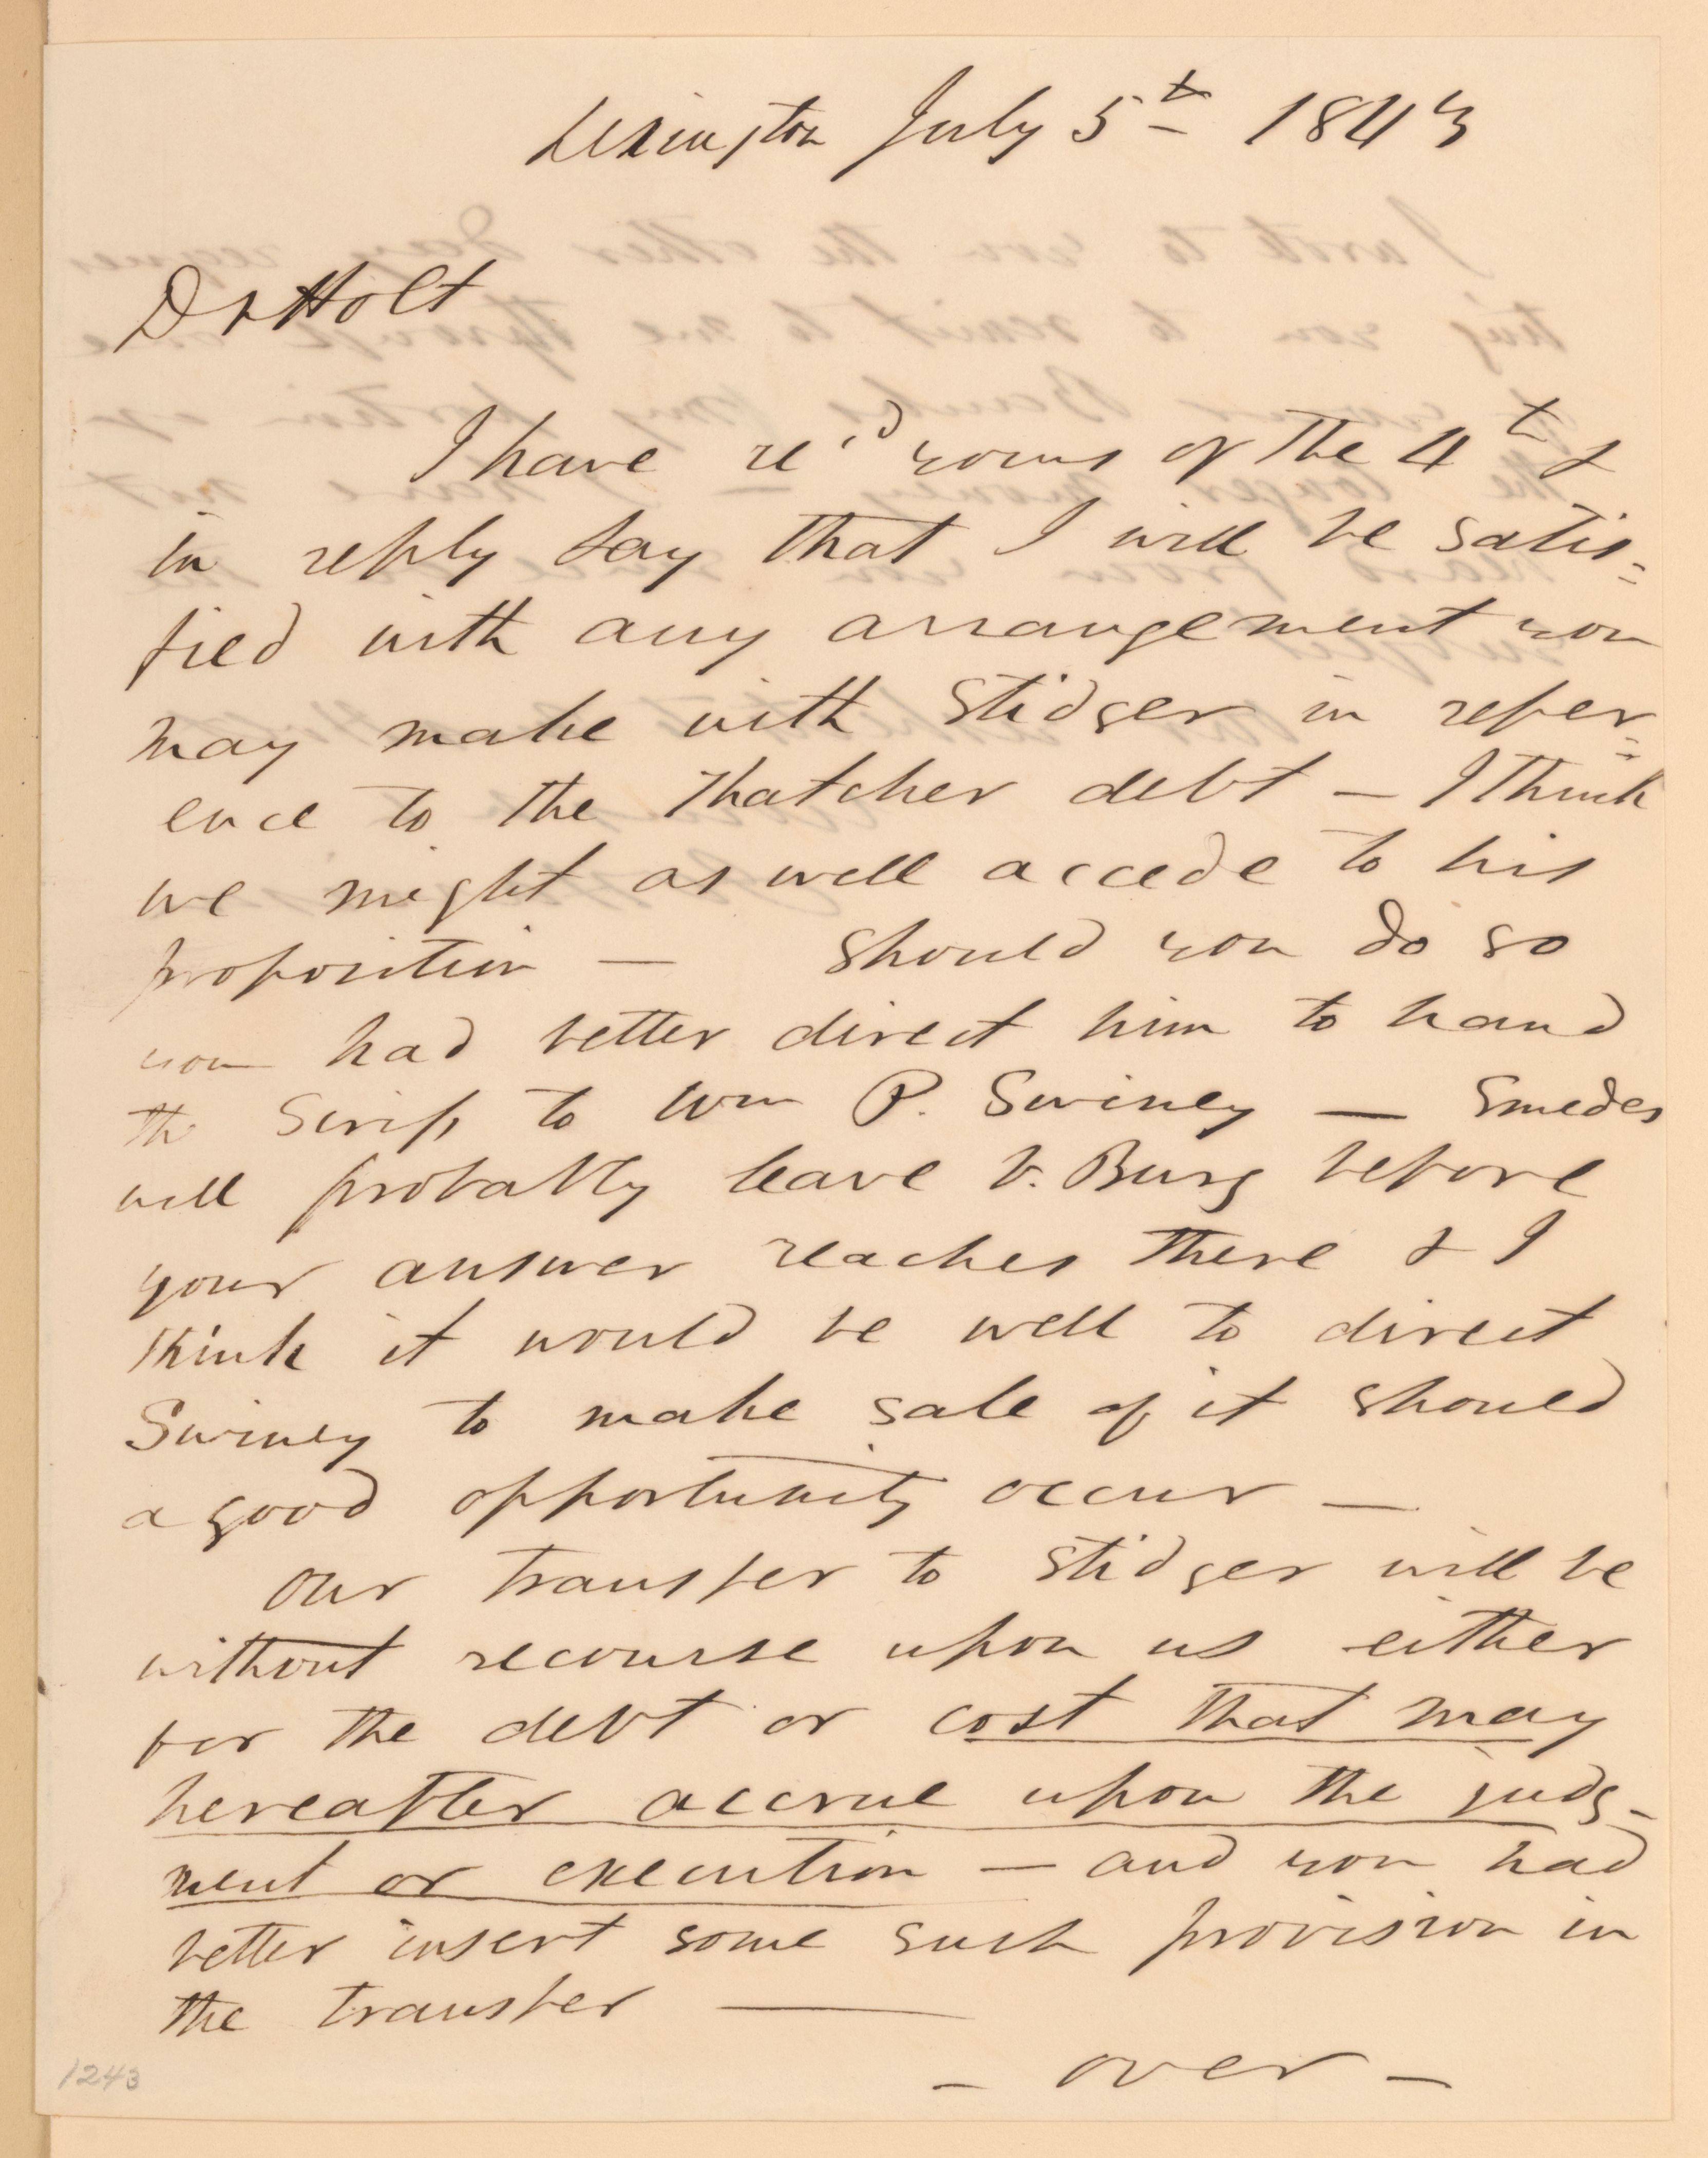 Lexington July 5th 1843
Dr Holt
I have rec'd yours of the 4th &
in reply say that I will be satis=
fied with any arrangement you
may make with Stidger in refer=
ence to the Thatcher debt — I think
we might as well accede to his
proposition — Should you do so
you had better direct him to hand
the Scrip to Wm P. Swiney — Smedes
will probably leave V. Burg before
your answer reaches there & I
think it would be well to direct
Swiney to make sale of it should
a good opportunity occur —
Our transfer to Stidger will be
without recourse upon us either
for the debt or cost that may
hereafter accrue upon the judg-
ment or execution — and you had
better insert some such provision in
the transfer —
— over —
1243